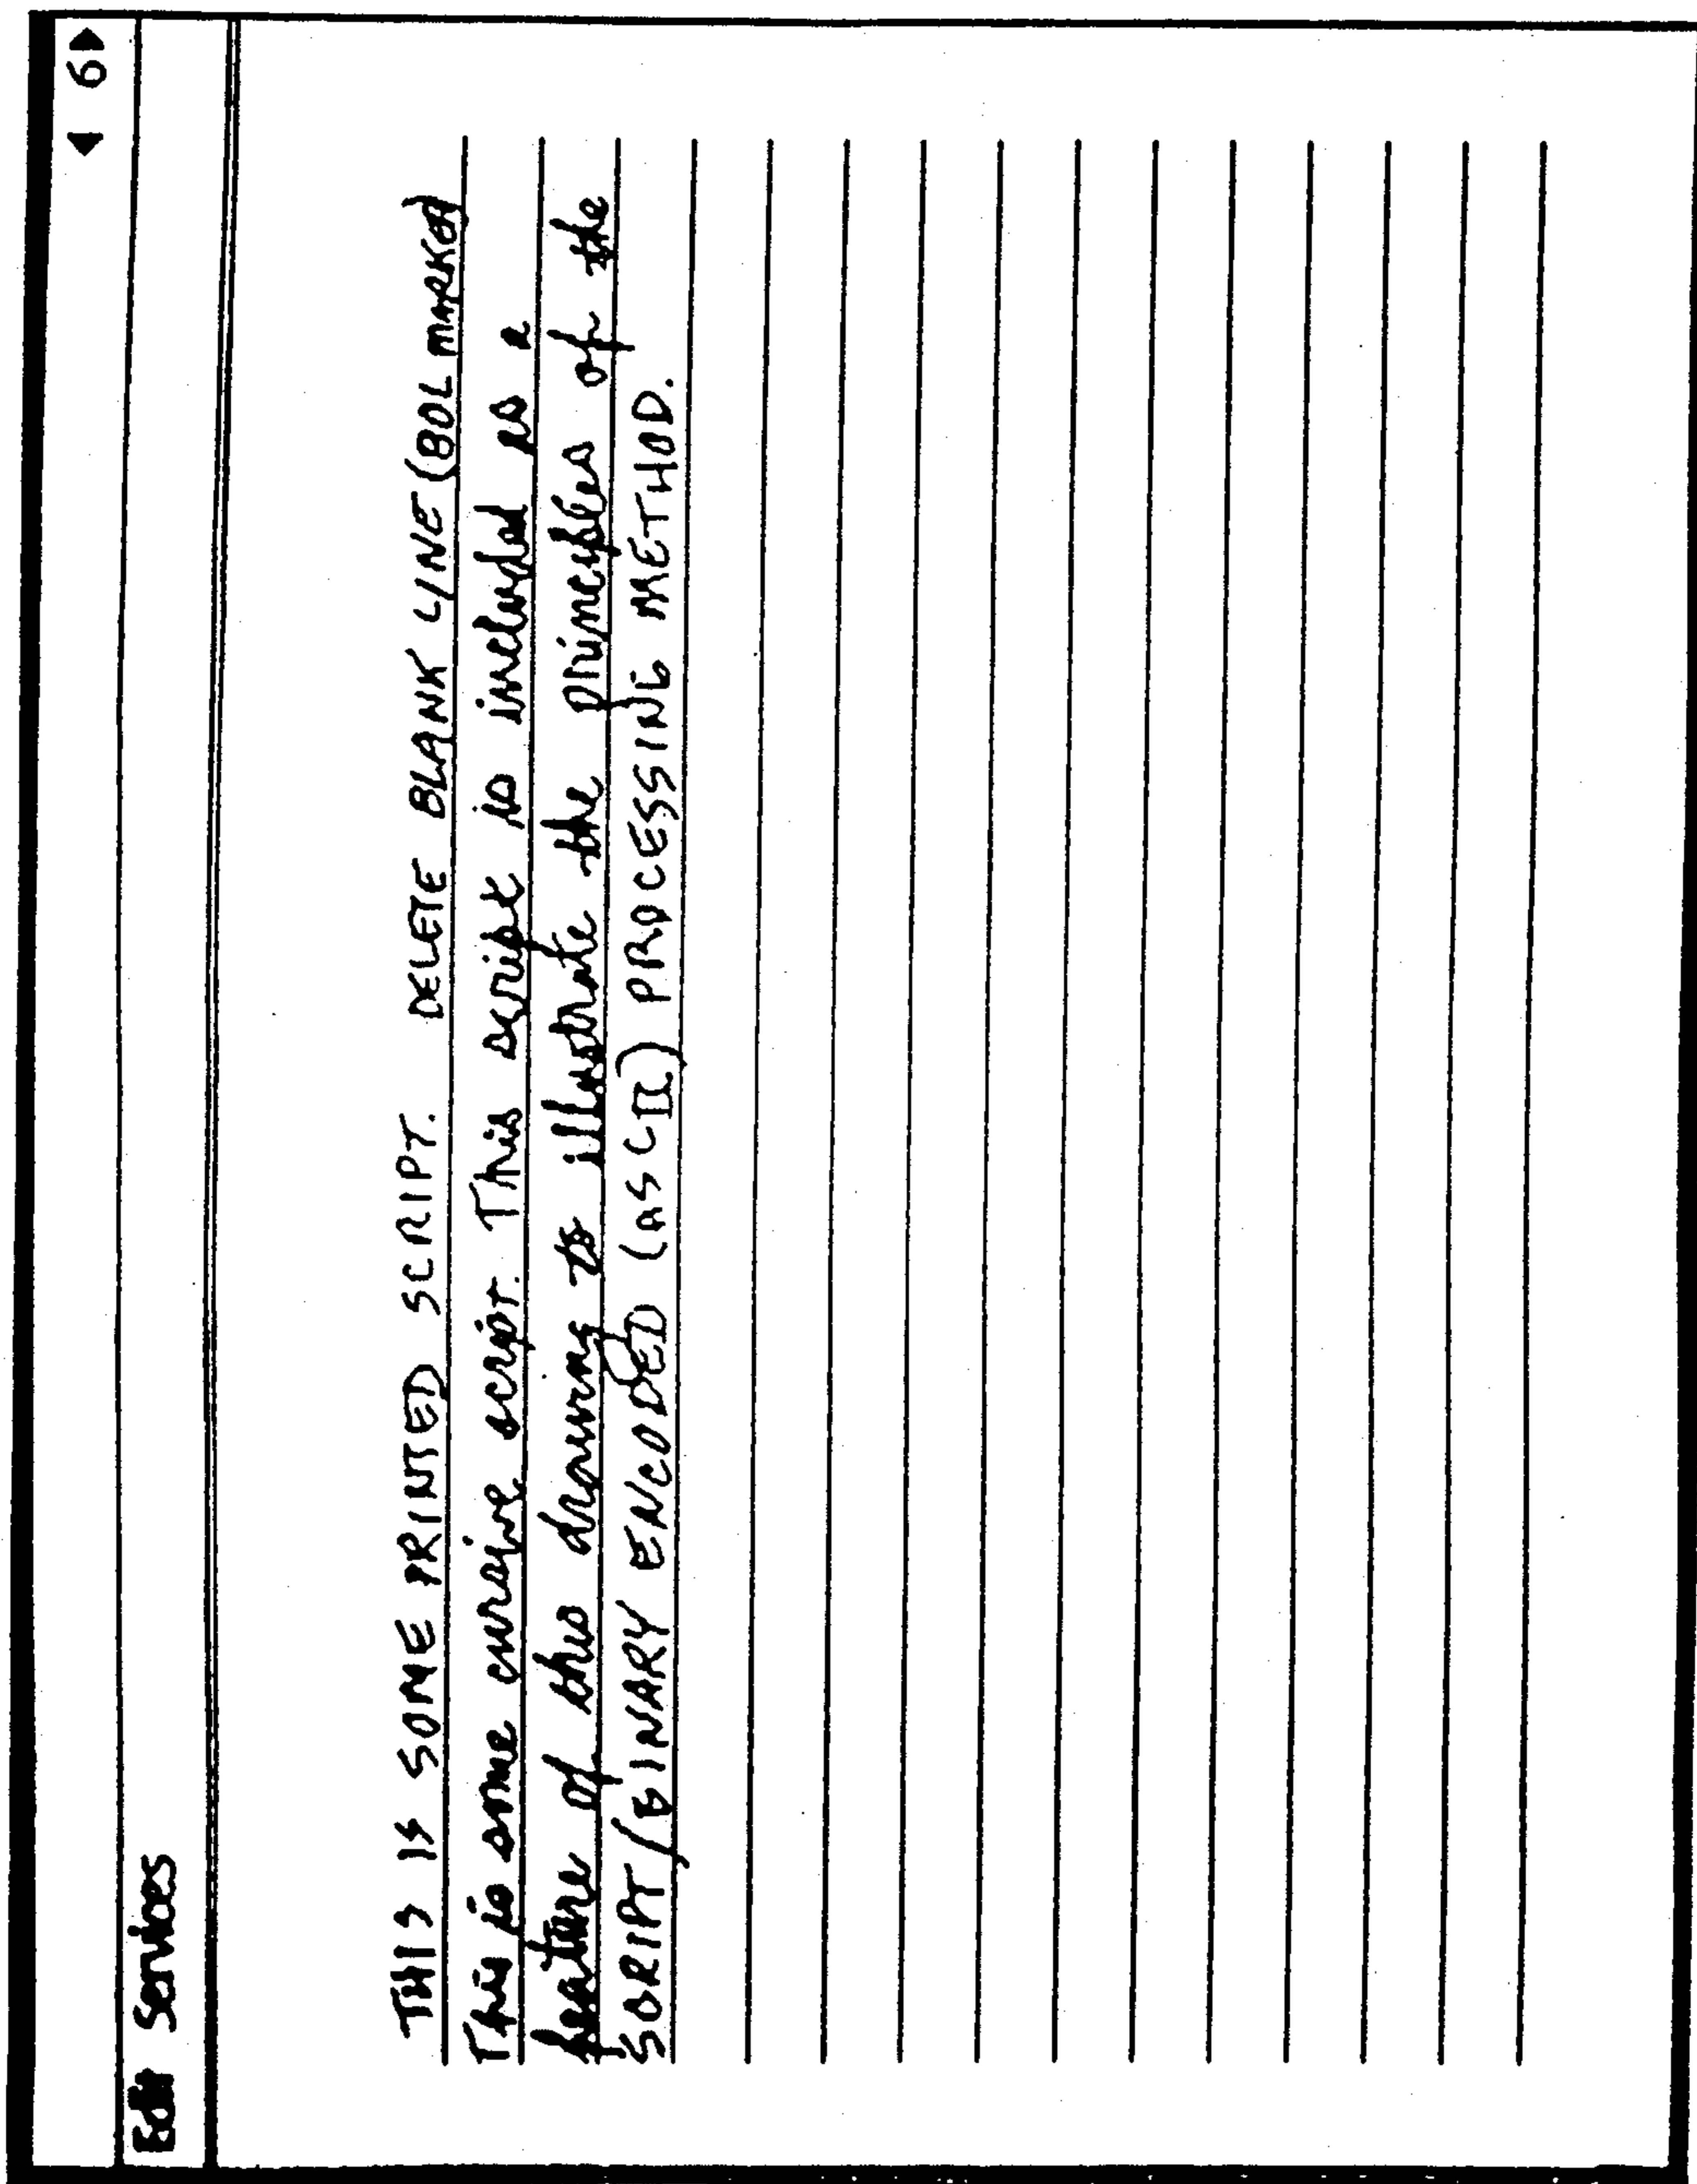 ◀ 6▶
Edit Services
THIS IS SOME PRINTED SCRIPT. DELETE BLANK LINE (BOL MARKER)
This is some cursive script. This script is included as a
feature of this drawing to illustrate the principles of the
SCRIPT/BINARY ENCODED (ASCII) PROCESSING METHOD.